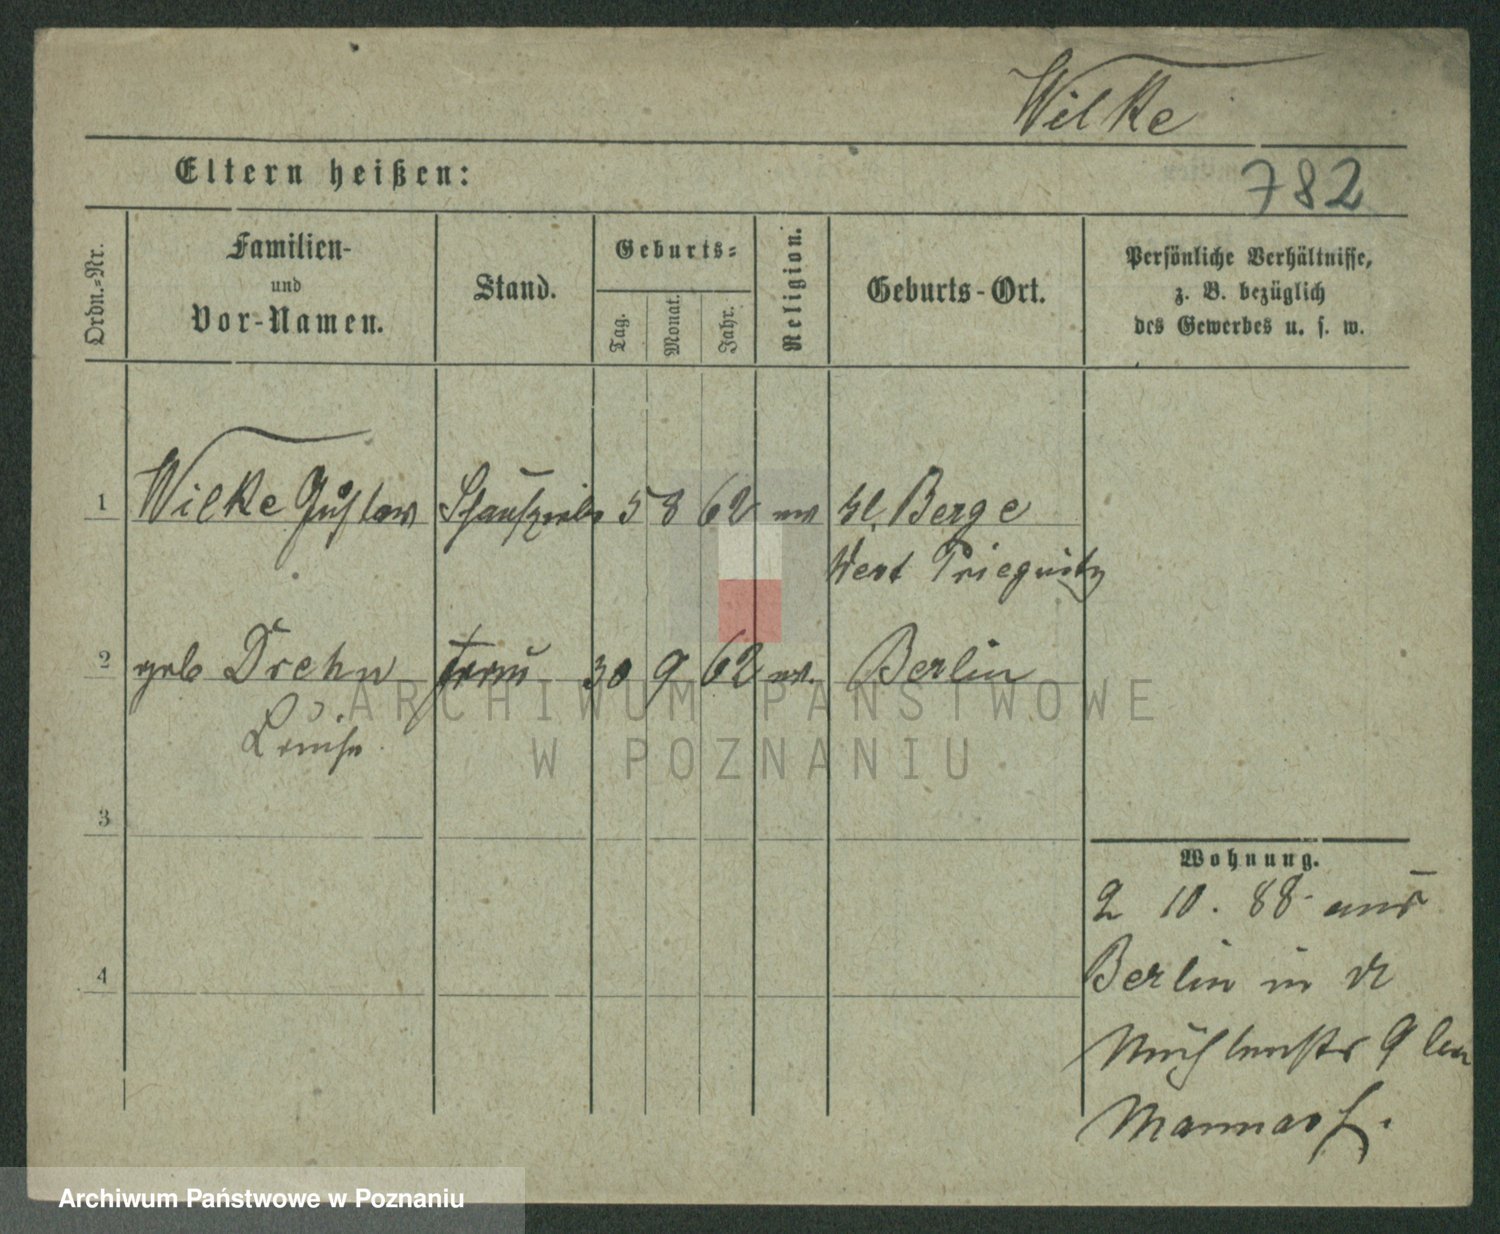 Wilke
Eltern heißen:
782
Ordn.-Nr.
Familien-
und
Vor-Namen.
Stand.
Geburts-
Tag.
Monat.
Jahr.
Religion.
Geburts-Ort.
Persönliche Verhältnisse,
z. B. bezüglich
des Gewerbes u. s. w.
1 Wilke Gustav Schauspieler 5 8 62 ev Kl. Berge
West Priegnitz
2 geb Drehn Frau 30 9 62 ev. Berlin
Louise
ARCHIWUM PAŃSTWOWE
W POZNANIU
3
4
Wohnung.
2 10. 88. aus
Berlin in
Mühlenstr 9 bei
Archiwum Państwowe w Poznaniu